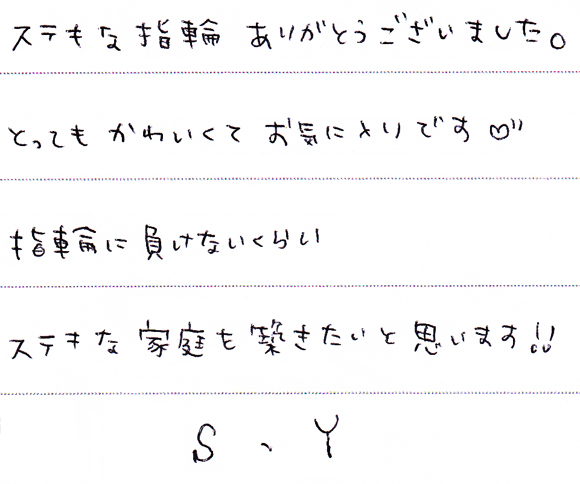 ステキな指輪 ありがとうございました。
とっても かわいくて お気に入りです♡"
指輪に 負けないくらい
ステキな 家庭を 築きたいと 思います!!
S、Y